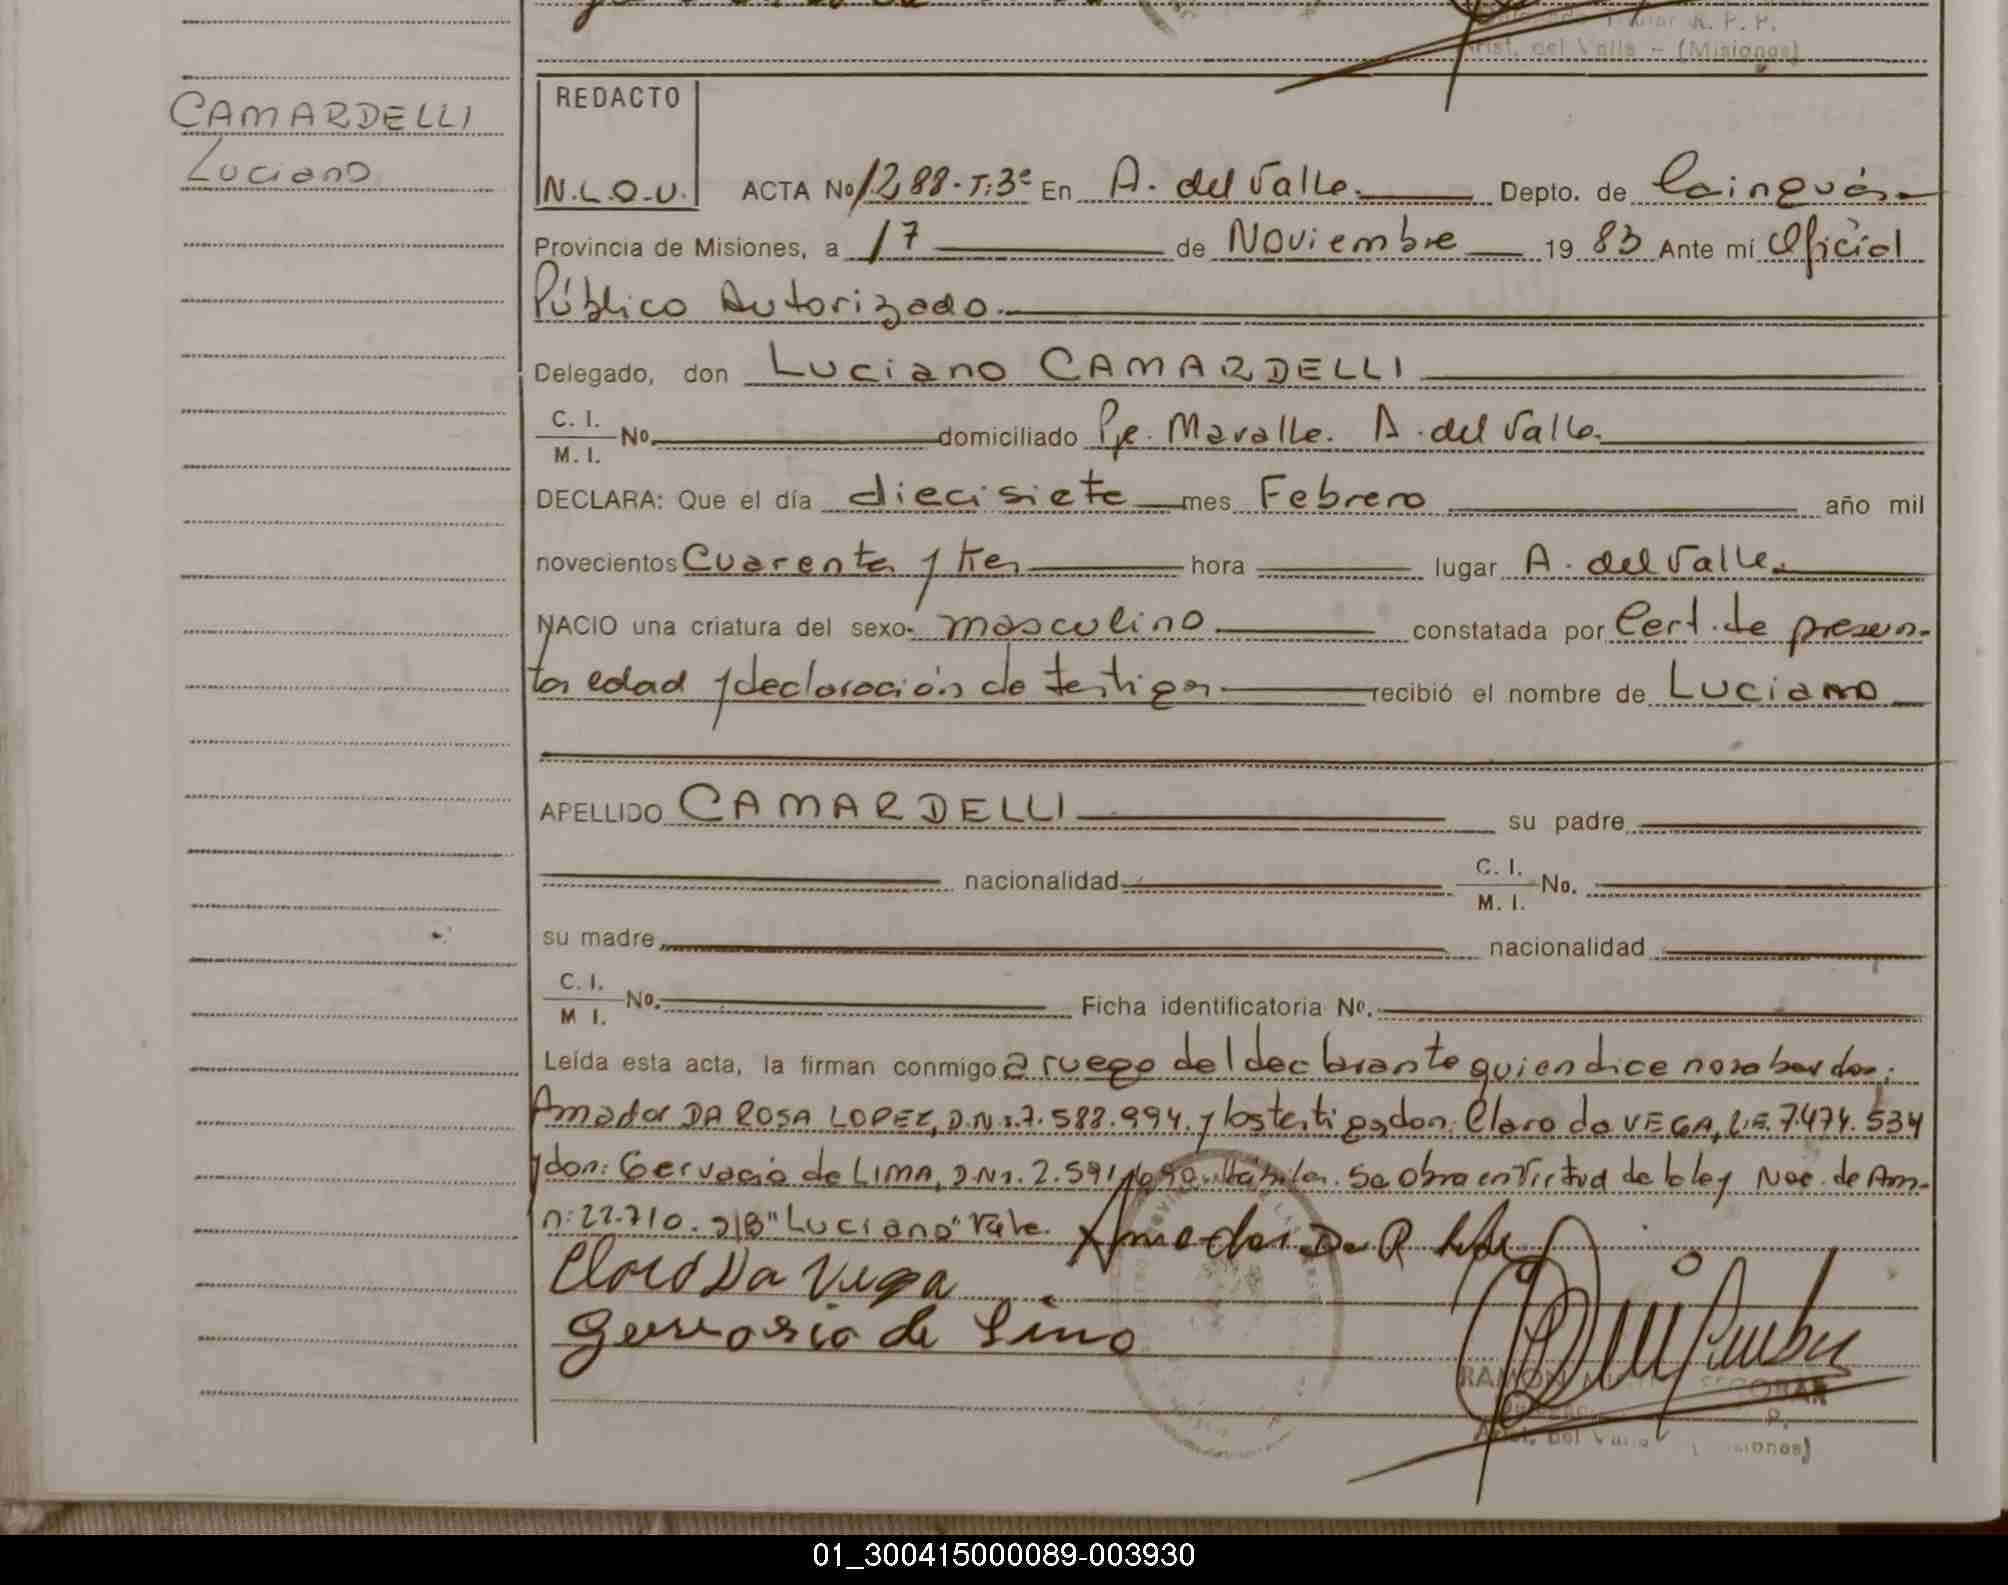 Titular R. P. P.
Arist. del Valle - (Misiones)
CAMARDELLI
Luciano
REDACTO
N.L.O.U.
ACTA No 1288-T:3º En A. del Valle. Depto. de Cainguás
Provincia de Misiones, a 17 de Noviembre 19 83 Ante mí Oficial
Público Autorizado.
Delegado, don Luciano CAMARDELLI
C. I.
M. I. No. domiciliado Pje. Mavalle. A. del Valle.
DECLARA: Que el día diecisiete mes Febrero año mil
novecientos Cuarenta y tres hora lugar A. del Valle.
NACIO una criatura del sexo masculino constatada por Cert. de presun-
ta edad y declaración de testigos recibió el nombre de Luciano
APELLIDO CAMARDELLI su padre
nacionalidad C. I.
M. I. No.
su madre nacionalidad
C. I.
M I. No. Ficha identificatoria No.
Leída esta acta, la firman conmigo a ruego del declarante quien dice no saber don:
Amador DA ROSA LOPEZ, D.N.I. 7.588.994. y los testigos don: Claro da VEGA, L.E. 7.474.534
y don: Gervacio de LIMA, D.N.I. 2.591 hábiles. Se obra en virtud de la ley Nac. de Am-
n: 22.710. s/B "Luciano" Vale. Amador Da R
Claro Da Vega
Gervasio de Lima
RAMON ESCOBAR
P.
Arist. del Valle (Misiones)
01_300415000089-003930